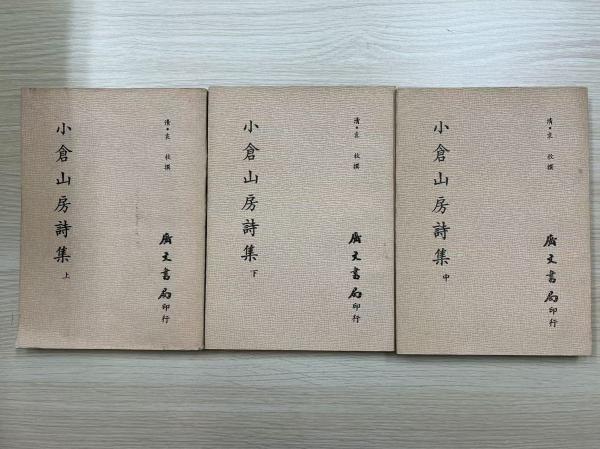 清•袁枚撰
小倉山房詩集 上
廣文書局印行
清•袁枚撰
小倉山房詩集 下
廣文書局印行
清•袁枚撰
小倉山房詩集 中
廣文書局印行